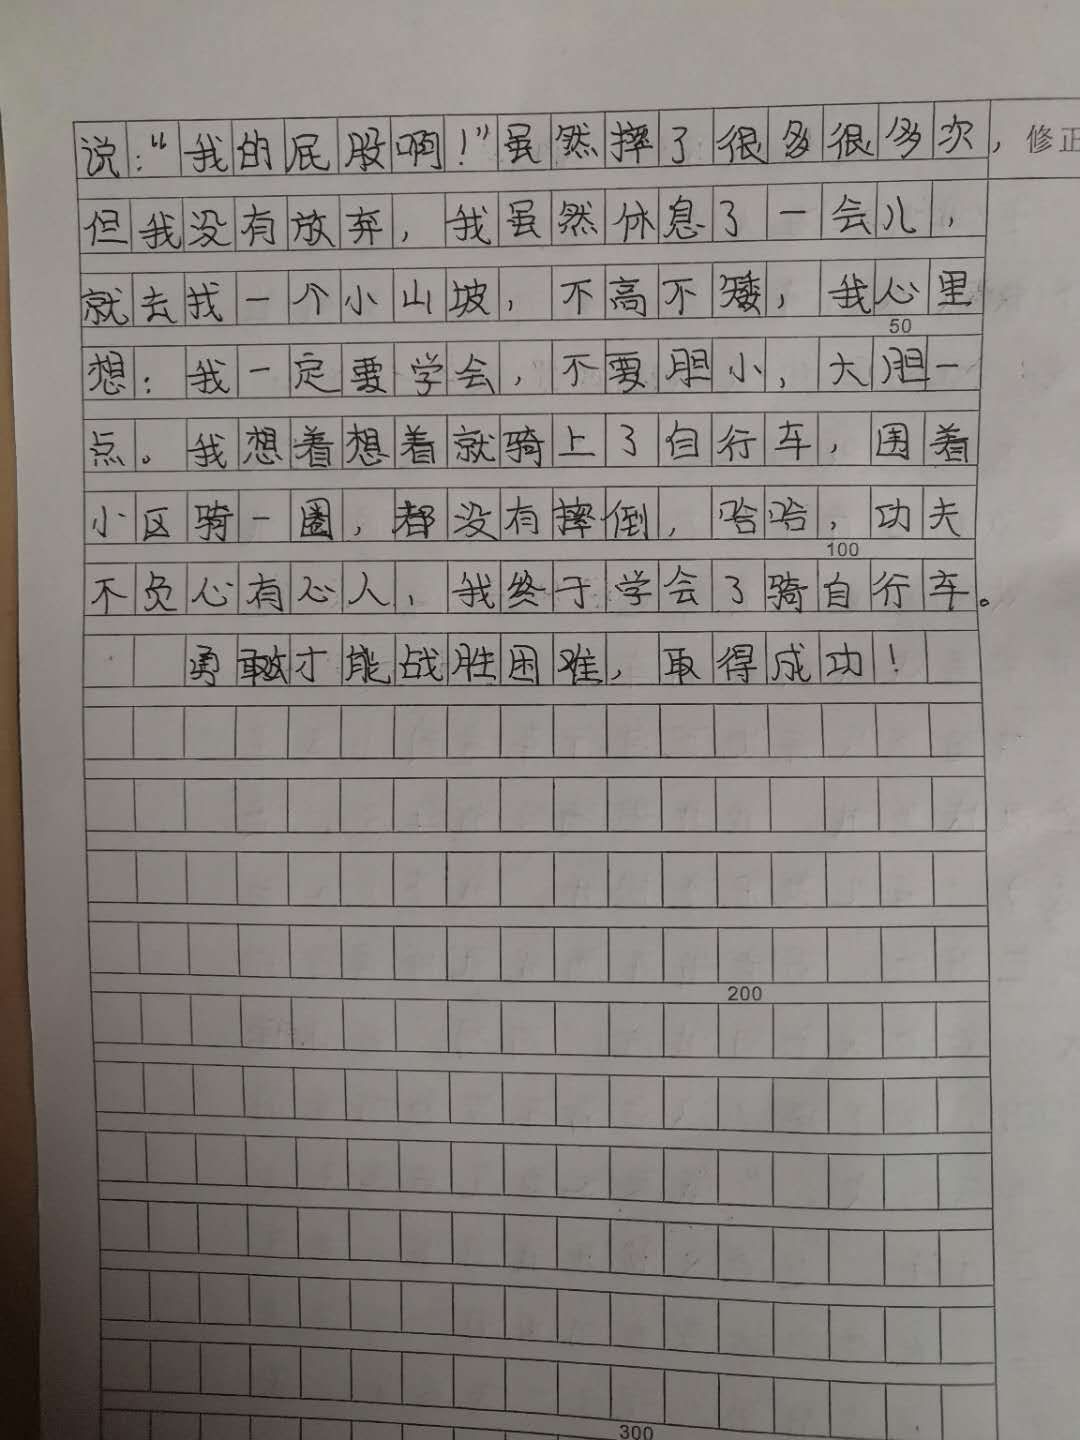 说：“我的屁股啊！”虽然摔了很多很多次，
修正
但我没有放弃，我虽然休息了一会儿，
就去找一个小山坡，不高不矮，我心里
50
想：我一定要学会，不要胆小，大胆一
点。我想着想着就骑上了自行车，围着
小区骑一圈，都没有摔倒，哈哈，功夫
100
不负心有心人，我终于学会了骑自行车。
勇敢才能战胜困难，取得成功！
200
300